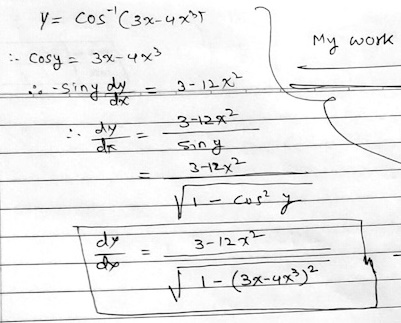 y = cos⁻¹(3x-4x³)
My work
∴ cosy = 3x-4x³
∴ -siny dy/dx = 3-12x²
∴ dy/dx = 3-12x² / sin y
= 3-12x² / √(1 - cos² y)
dy/dx = 3-12x² / √(1-(3x-4x³)²)